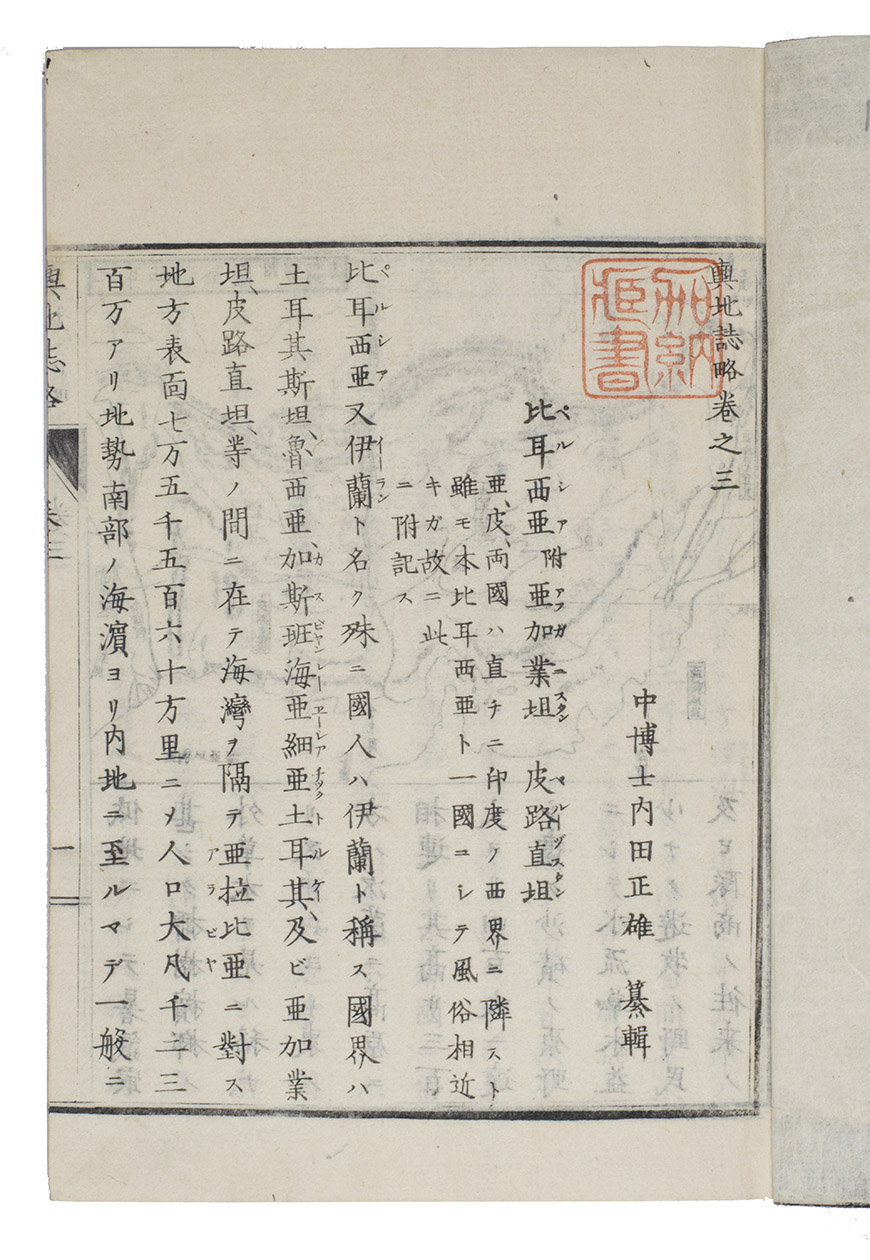 輿地誌略卷之三
加納
姫書
中博士内田正雄 纂輯
比耳西亜 附 亜加業坦 皮路直坦
ペルシア アフガニスタン
亜、皮、両國ハ直チニ印度ノ西界ニ隣スト
雖モ本比耳西亜ト一國ニシテ風俗相近
キガ故ニ此
ニ附記ス
比耳西亜又伊蘭ト名ク殊ニ國人ハ伊蘭ト稱ス國界ハ
ペルシア イーラン
土耳其斯坦、魯西亜、加斯班海亜細亜土耳其、及ビ亜加業
坦、皮路直坦、等ノ間ニ在テ海灣ヲ隔テ亜拉比亜ニ對ス
アラビヤ
地方表面七万五千五百六十方里ニメ人口大凡千二三
百万アリ地勢南部ノ海濵ヨリ内地ニ至ルマデ一般ニ
輿地誌略
卷三
一